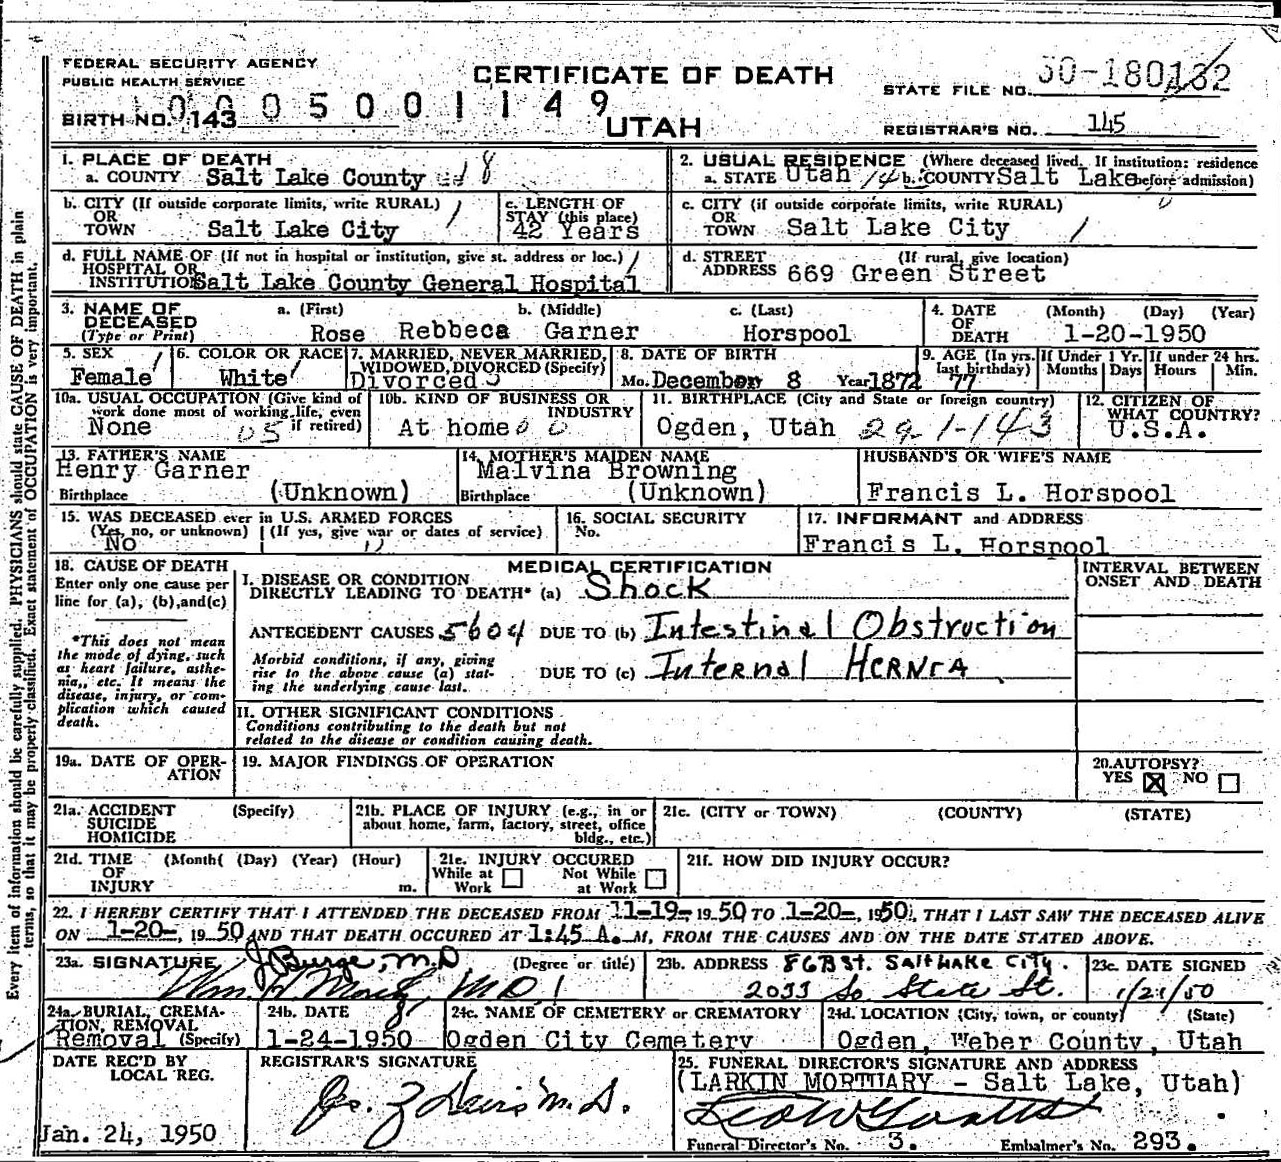 FEDERAL SECURITY AGENCY
PUBLIC HEALTH SERVICE
CERTIFICATE OF DEATH
STATE FILE NO.
0005001149
BIRTH NO. 143
UTAH
REGISTRAR'S NO. 145
1. PLACE OF DEATH
a. COUNTY Salt Lake County 18
2. USUAL RESIDENCE (Where deceased lived. If institution: residence before admission)
a. STATE Utah b. COUNTY Salt Lake
b. CITY (If outside corporate limits, write RURAL)
OR
TOWN Salt Lake City
c. LENGTH OF
STAY (this place)
42 Years
c. CITY (if outside corporate limits, write RURAL)
OR
TOWN Salt Lake City
d. FULL NAME OF (If not in hospital or institution, give st. address or loc.)
HOSPITAL OR
INSTITUTION Salt Lake County General Hospital
d. STREET (If rural, give location)
ADDRESS 669 Green Street
3. NAME OF a. (First) b. (Middle) c. (Last)
DECEASED
(Type or Print) Rose Rebbeca Garner Horspool
4. DATE (Month) (Day) (Year)
OF
DEATH 1-20-1950
5. SEX
Female
6. COLOR OR RACE
White
7. MARRIED, NEVER MARRIED,
WIDOWED, DIVORCED (Specify)
Divorced
8. DATE OF BIRTH
Mo. December 8 Year 1872
9. AGE (In yrs.
last birthday)
77
If Under 1 Yr.
Months Days
If under 24 hrs.
Hours Min.
10a. USUAL OCCUPATION (Give kind of
work done most of working life, even
if retired)
None 05
10b. KIND OF BUSINESS OR
INDUSTRY
At home 00
11. BIRTHPLACE (City and State or foreign country)
Ogden, Utah
12. CITIZEN OF
WHAT COUNTRY?
U.S.A.
13. FATHER'S NAME
Henry Garner
Birthplace (Unknown)
14. MOTHER'S MAIDEN NAME
Malvina Browning
Birthplace (Unknown)
HUSBAND'S OR WIFE'S NAME
Francis L. Horspool
15. WAS DECEASED ever in U.S. ARMED FORCES
(Yes, no, or unknown) (If yes, give war or dates of service)
No
16. SOCIAL SECURITY
No.
17. INFORMANT and ADDRESS
Francis L. Horspool
18. CAUSE OF DEATH
Enter only one cause per
line for (a), (b), and (c)
*This does not mean
the mode of dying, such
as heart failure, asthe-
nia, etc. It means the
disease, injury, or com-
plication which caused
death.
MEDICAL CERTIFICATION
I. DISEASE OR CONDITION
DIRECTLY LEADING TO DEATH* (a) Shock
ANTECEDENT CAUSES 5604 DUE TO (b) Intestinal Obstruction
Morbid conditions, if any, giving
rise to the above cause (a) stat-
ing the underlying cause last.
DUE TO (c) Internal Hernia
INTERVAL BETWEEN
ONSET AND DEATH
II. OTHER SIGNIFICANT CONDITIONS
Conditions contributing to the death but not
related to the disease or condition causing death.
19a. DATE OF OPER-
ATION
19. MAJOR FINDINGS OF OPERATION
20. AUTOPSY?
YES NO
21a. ACCIDENT (Specify)
SUICIDE
HOMICIDE
21b. PLACE OF INJURY (e.g., in or
about home, farm, factory, street, office
bldg., etc.)
21c. (CITY or TOWN) (COUNTY) (STATE)
21d. TIME (Month( (Day) (Year) (Hour)
OF
INJURY m.
21e. INJURY OCCURED
While at Not While
Work at Work
21f. HOW DID INJURY OCCUR?
22. I HEREBY CERTIFY THAT I ATTENDED THE DECEASED FROM 11-19-, 1950 TO 1-20-, 1950, THAT I LAST SAW THE DECEASED ALIVE
ON 1-20-, 1950 AND THAT DEATH OCCURED AT 1:45 A. M, FROM THE CAUSES AND ON THE DATE STATED ABOVE.
23a. SIGNATURE J Burge, M.D (Degree or title)
M.D.
23b. ADDRESS Salt Lake City.
2033 So State St.
23c. DATE SIGNED
1/21/50
24a. BURIAL, CREMA-
TION, REMOVAL
Removal (Specify)
24b. DATE
1-24-1950
24c. NAME OF CEMETERY or CREMATORY
Ogden City Cemetery
24d. LOCATION (City, town, or county) (State)
Ogden, Weber County, Utah
DATE REC'D BY
LOCAL REG.
Jan. 24, 1950
REGISTRAR'S SIGNATURE
25. FUNERAL DIRECTOR'S SIGNATURE AND ADDRESS
(LARKIN MORTUARY - Salt Lake, Utah)
Funeral Director's No. 3. Embalmer's No. 293.
Every item of information should be carefully supplied. PHYSICIANS should state CAUSE OF DEATH in plain
terms, so that it may be properly classified. Exact statement of OCCUPATION is very important.